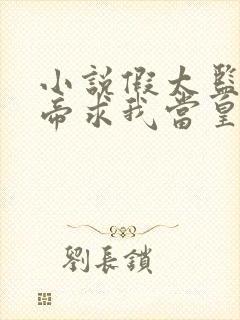 小說假太監
帝求我當皇
劉長鎖